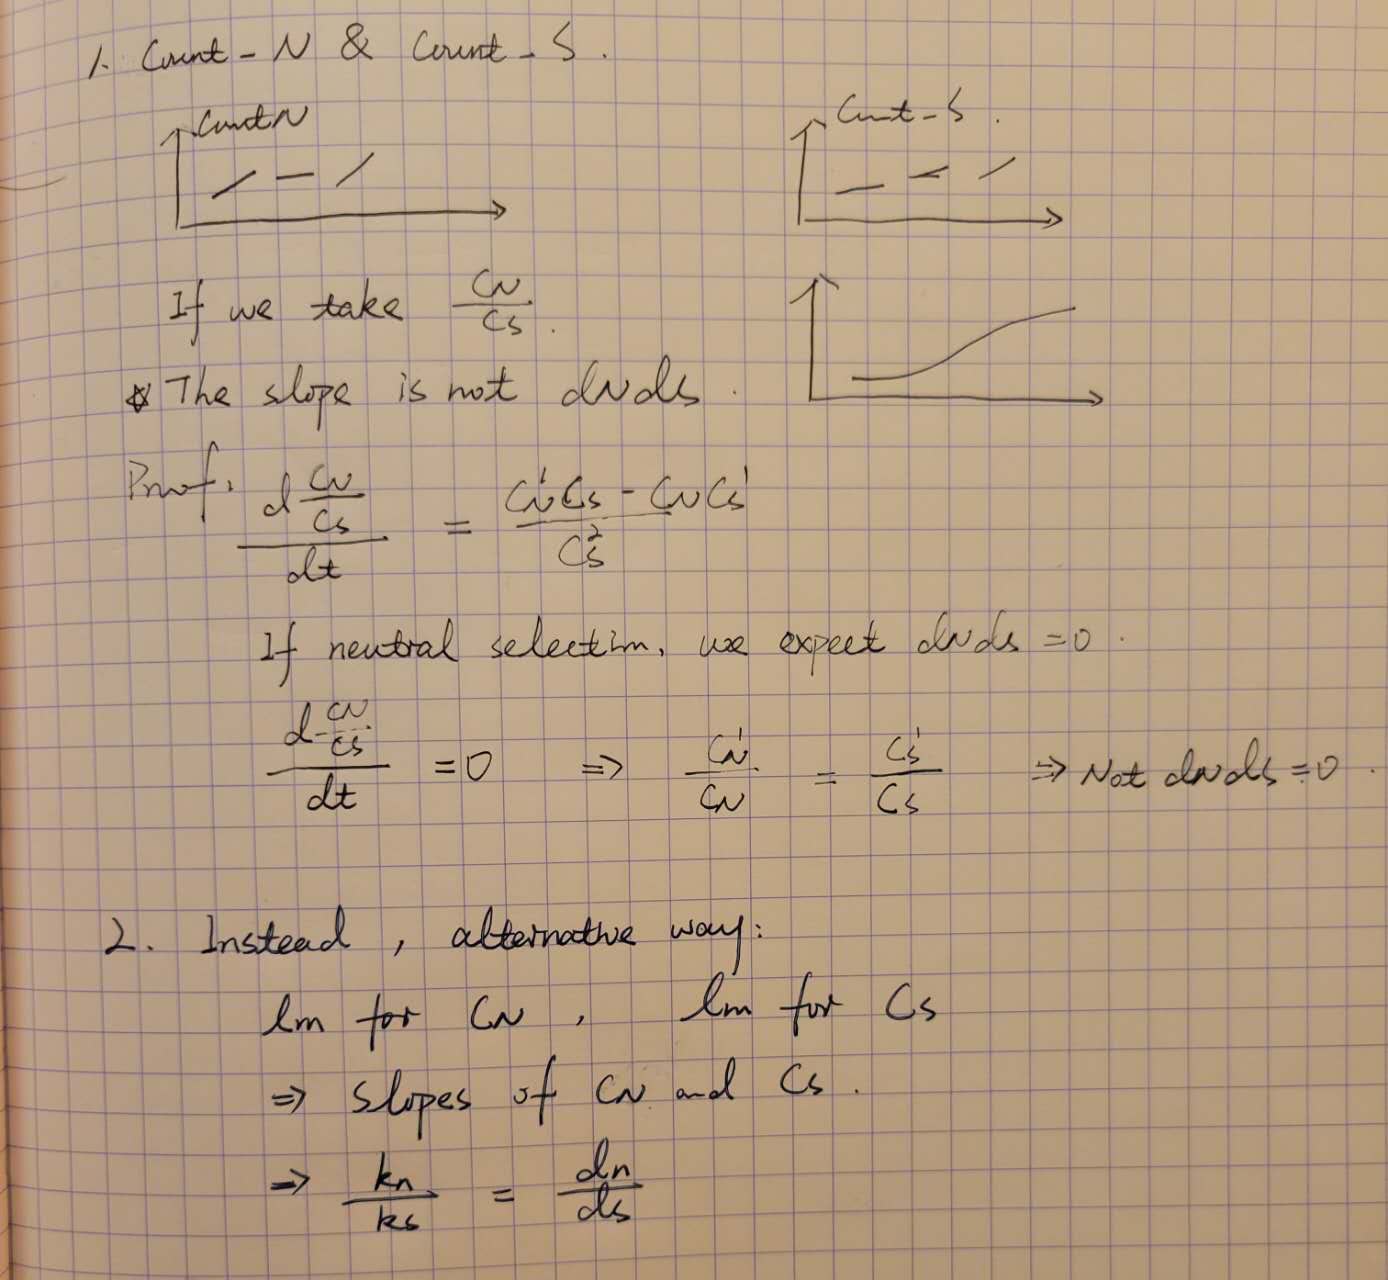 1. Count-N & Count-S.
CountN
Count-S.
If we take CN/CS.
☆ The slope is not dNdS.
Proof: d(CN/CS)/dt = (CN'CS - CNCS')/CS²
If neutral selection, we expect dNdS = 0.
d(CN/CS)/dt = 0 ⇒ CN'/CN = CS'/CS ⇒ Not dNdS = 0.
2. Instead, alternative way:
lm for CN, lm for CS
⇒ slopes of CN and CS.
⇒ kn/ks = dn/ds